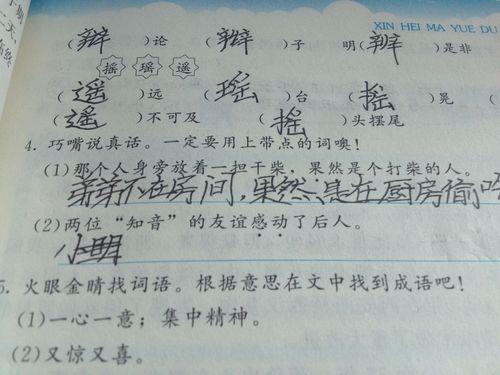 XIN HEI MA YUE DU
(辩)论 (辫)子 明(辨)是非
摇 瑶 遥
(遥)远 (瑶)台 (摇)晃
(遥)不可及 (摇)头摆尾
4. 巧嘴说真话。一定要用上带点的词噢!
(1)那个人身旁放着一担干柴，果然是个打柴的人。
芽芽不在房间，果然，是在厨房偷
(2)两位“知音”的友谊感动了后人。
小明
5. 火眼金睛找词语。根据意思在文中找到成语吧!
(1)一心一意；集中精神。
(2)又惊又喜。